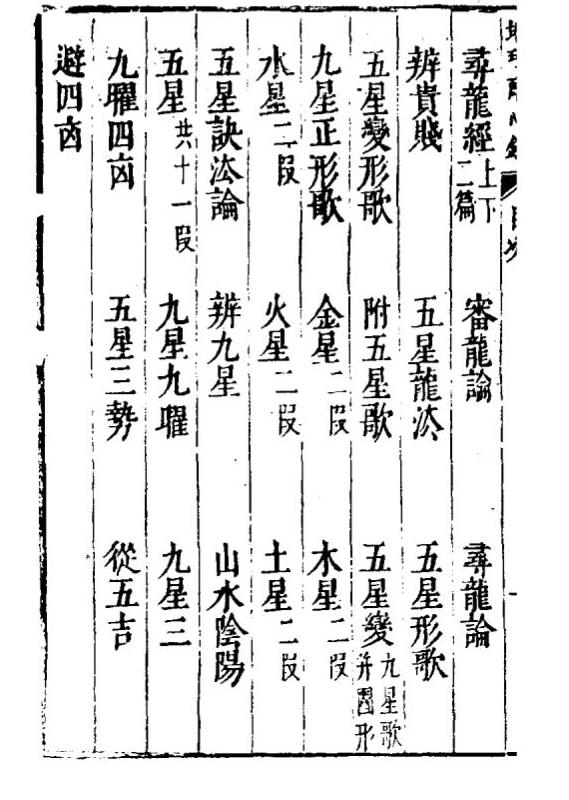 目次
尋龍經上下二篇 審龍論 尋龍論
辨貴賤 五星龍法 五星形歌
五星變形歌 附五星歌 五星變九星歌并圖形
九星正形歌 金星二段 木星二段
水星二段 火星二段 土星二段
五星訣法論 辨九星 山水陰陽
五星共十一段 九星九曜 九星三
九曜四凶 五星三勢 從五吉
避四凶